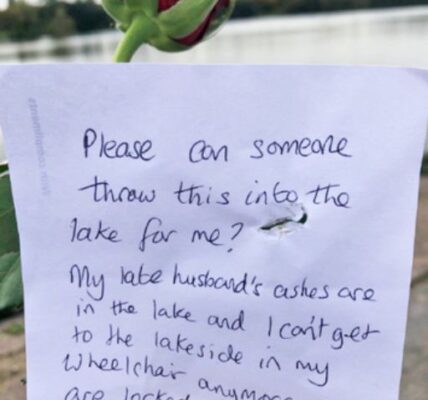 Please can someone
throw this into the
lake for me?
My late husband's ashes are
in the lake and I can't get
to the lakeside in my
wheelchair anymore
are locked